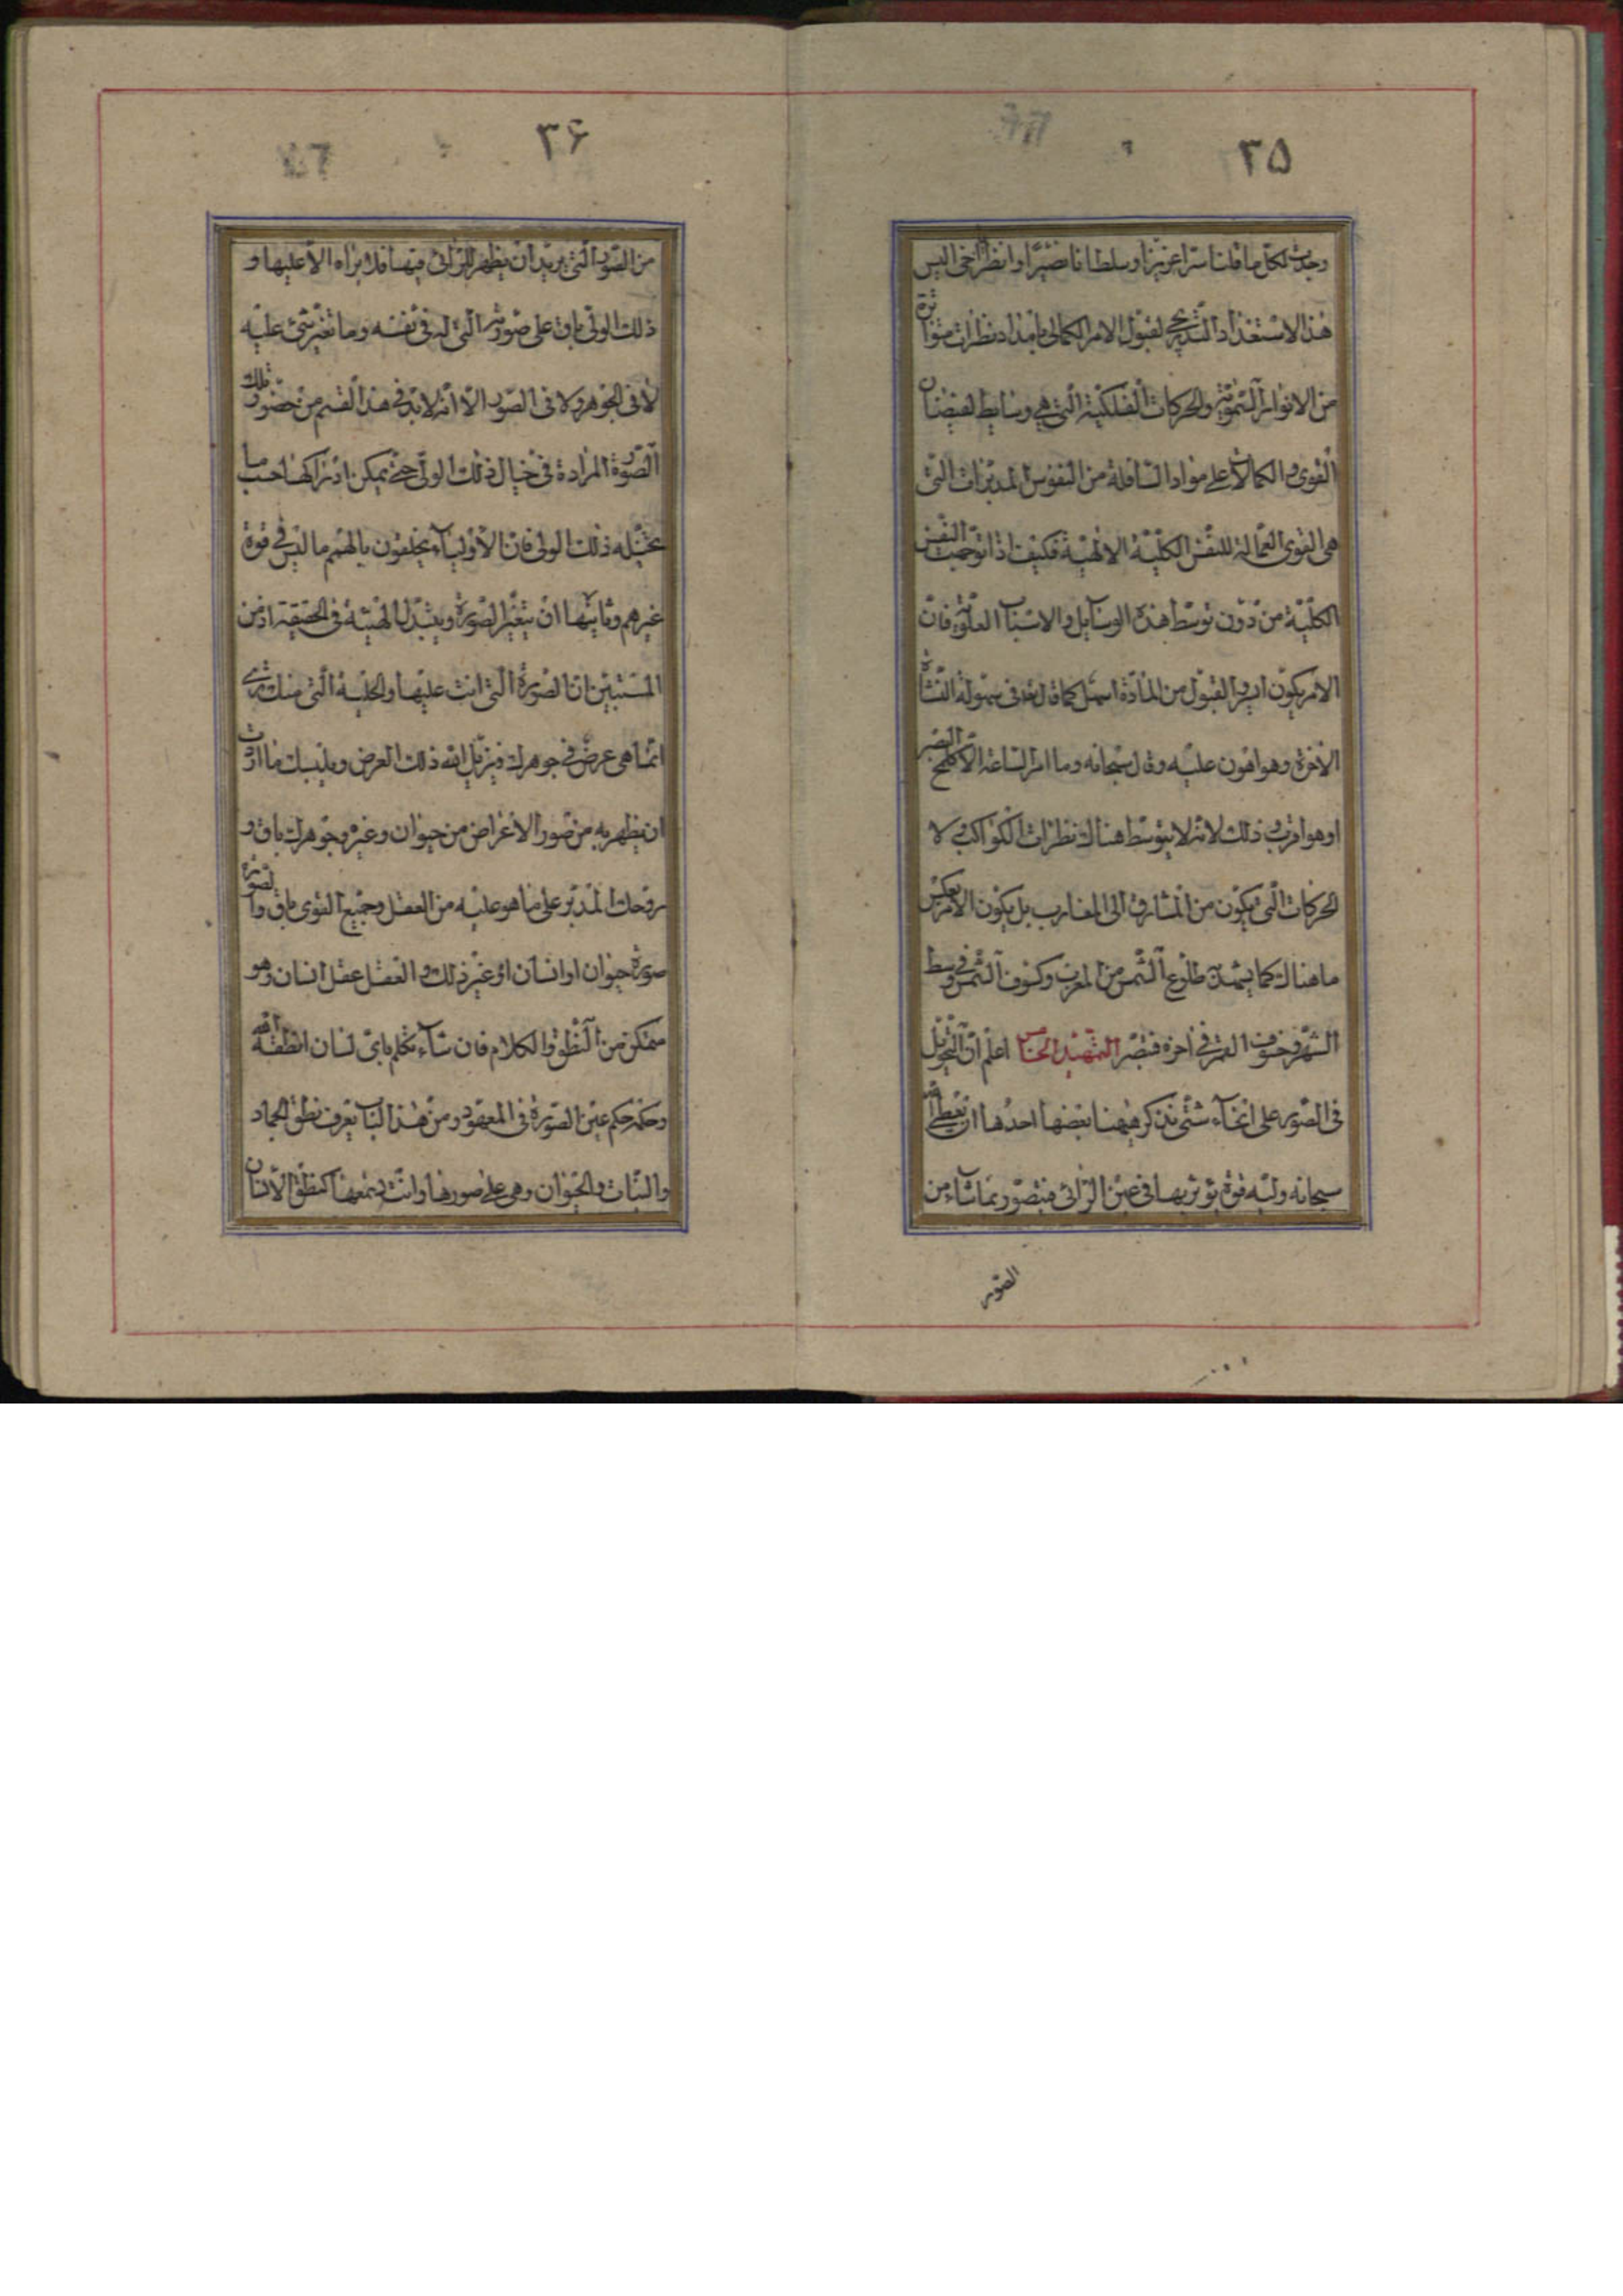 ٣٥
وجدت لكل ما قلنا سرا عزيزا وسلطانا نصيرا وانظر اخى اليس
هذا الاستعداد التدريجى لقبول الامر الكمالى بامداد نظرات متواترة
من الانوار السموية والحركات الفلكية التى هى وسايط لفيضان
القوى والكمالات على مواد السافلة من النفوس المدبرات التى
هى القوى العمالة للنفس الكلية الالهية فكيف اذا توجهت النفس
الكلية من دون توسط هذه الوسايل والاسباب العلوية فان
الامر يكون ادبر القبول من المادة اسهل كما قال تعالى فى سهولة النشاة
الاخرة وهو اهون عليه وقال سبحانه وما امر الساعة الا كلمح البصر
او هو اقرب وذلك لانه لا يتوسط هناك نظرات الكواكب ولا
الحركات التى يكون من المشارق الى المغارب بل يكون الامر بعكس
ما هناك كما يشهد به طلوع الشمس من المغرب وكسوف الشمس فى وسط
الشهر وخسوف القمر فى اخره فتبصر التمهيد الخامس اعلم ان التحول
فى الصور على انحاء شتى نذكر هيهنا بعضها احدها ان يعطى الله
سبحانه وليه قوة يؤثر بها فى عين الرائى فيتصور بما شاء من
الصور
٣۶
من الصور التى يريد ان يظهر للرائى فيها فلا يراه الا عليها و
ذلك الولى باق على صورته التى له فى نفسه وما تغير شىء عليه
لا فى الجوهر ولا فى الصور الا انه لا بد فى هذا القسم من حضور تلك
الصورة المرادة فى خيال ذلك الولى حتى يمكن ادراكها حسب ما
يتخيله ذلك الولى فان الاولياء يخلقون بالهمم ما ليس فى قوة
غيرهم وثانيها ان يتغير الصورة ويتبدل الهيئة فى الحقيقة اذ من
المستبين ان الصورة التى انت عليها والحلية التى منك ترى
انما هى عرض فى جوهرك فيزيل الله ذلك العرض ويلبسك ما اردت
ان يظهر به من صور الاعراض من حيوان وغيره وجوهرك باق و
روحك المدبر على ما هو عليه من العقل وجميع القوى باق والصورة
صورة حيوان او انسان او غير ذلك والعقل عقل انسان وهو
متمكن من النطق والكلام فان شاء تكلم باى لسان انطقه الله
وحكمه حكم عين الصورة فى المعهود ومن هذا الباب يعرف نطق الجماد
والنبات والحيوان وهى على صورها وانت تسمعها كنطق الانسان